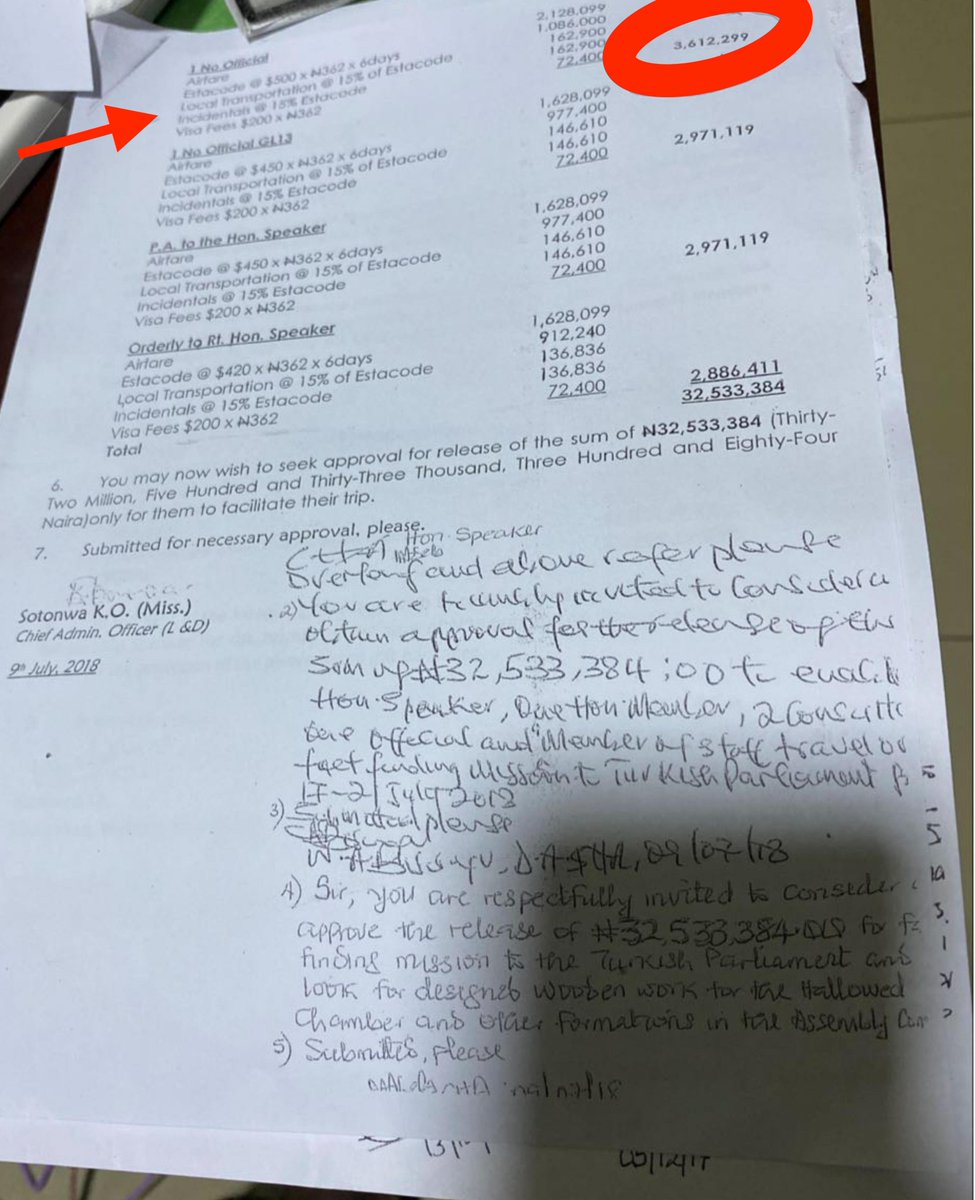 1 No Official
Airfare 2,128,099
Estacode @ $500 x ₦362 x 6days 1,086,000
Local Transportation @ 15% of Estacode 162,900
Incidentals @ 15% Estacode 162,900
Visa Fees $200 x ₦362 72,400 3,612,299
1 No Official GL13
Airfare 1,628,099
Estacode @ $450 x ₦362 x 6days 977,400
Local Transportation @ 15% of Estacode 146,610
Incidentals @ 15% Estacode 146,610
Visa Fees $200 x ₦362 72,400 2,971,119
P.A. to the Hon. Speaker
Airfare 1,628,099
Estacode @ $450 x ₦362 x 6days 977,400
Local Transportation @ 15% of Estacode 146,610
Incidentals @ 15% Estacode 146,610
Visa Fees $200 x ₦362 72,400 2,971,119
Orderly to Rt. Hon. Speaker
Airfare 1,628,099
Estacode @ $420 x ₦362 x 6days 912,240
Local Transportation @ 15% of Estacode 136,836
Incidentals @ 15% Estacode 136,836
Visa Fees $200 x ₦362 72,400 2,886,411
Total 32,533,384
6. You may now wish to seek approval for release of the sum of ₦32,533,384 (Thirty-
Two Million, Five Hundred and Thirty-Three Thousand, Three Hundred and Eighty-Four
Naira)only for them to facilitate their trip.
7. Submitted for necessary approval, please.
Sotonwa K.O. (Miss.)
Chief Admin. Officer (L &D)
9th July, 2018
Hon. Speaker
Overleaf and above refer please
2) You are kindly invited to consider
obtain approval for the release of the
Sum of ₦32,533,384:00 to
Hon. Speaker, One Hon. Member, 2
One Official and Member of staff travel
fact finding Mission to Turkish Parliament
17-21 July 2018
3) please
09/07/18
4) Sir, you are respectfully invited to consider
approve the release of ₦32,533,384.00 for
finding mission to the Turkish Parliament and
look for designed wooden work for the Hallowed
Chamber and other formations in the Assembly
5) Submitted, please